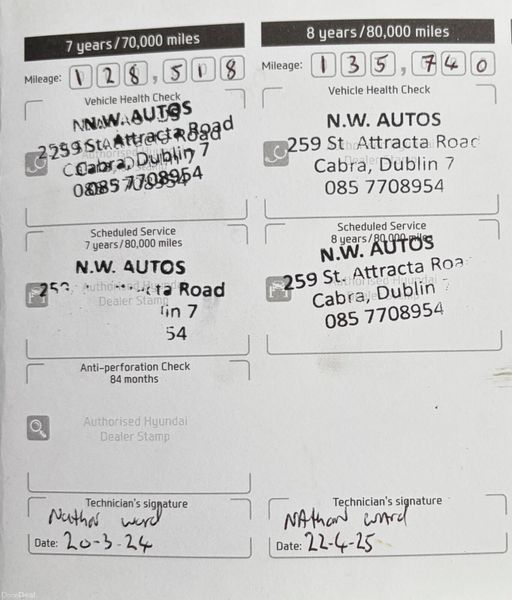 7 years/70,000 miles
Mileage: 128,518
Vehicle Health Check
N.W. AUTOS
259 St. Attracta Road
Cabra, Dublin 7
085 7708954
Scheduled Service
7 years/80,000 miles
N.W. AUTOS
Authorised Hyundai
Road
Dealer Stamp
in 7
54
Anti-perforation Check
84 months
Authorised Hyundai
Dealer Stamp
Technician's signature
Nathan ward
Date: 20-3-24
8 years/80,000 miles
Mileage: 135,740
Vehicle Health Check
N.W. AUTOS
259 St Attracta Road
Cabra, Dublin 7
085 7708954
Scheduled Service
8 years/80,000 miles
N.W. AUTOS
259 St. Attracta Roa
Cabra, Dublin
085 7708954
Technician's signature
NAthan ward
Date: 22-4-25
DoneDeal